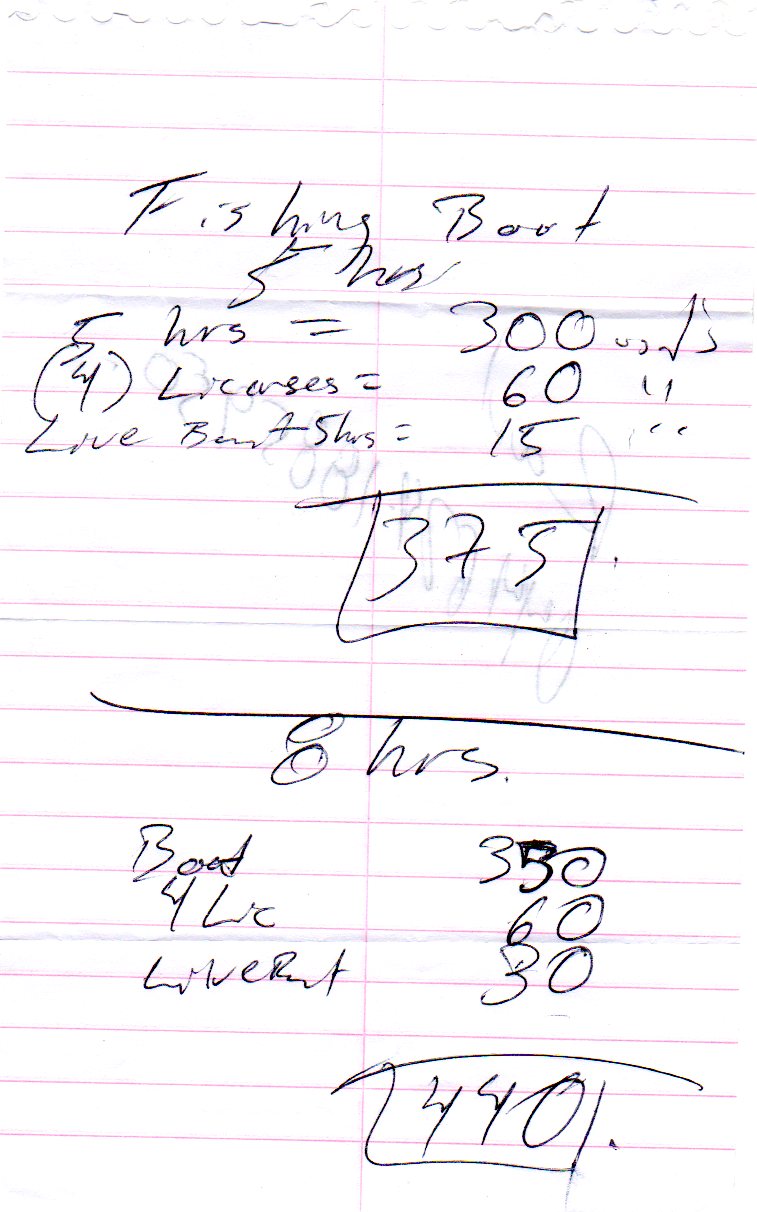 Fishing Boat
5 hrs
5 hrs = 300 usd's
(4) Licenses = 60 "
Live Bait 5hrs = 15 "
375.
8 hrs.
Boat 350
4 Lic 60
Live Bait 30
440.